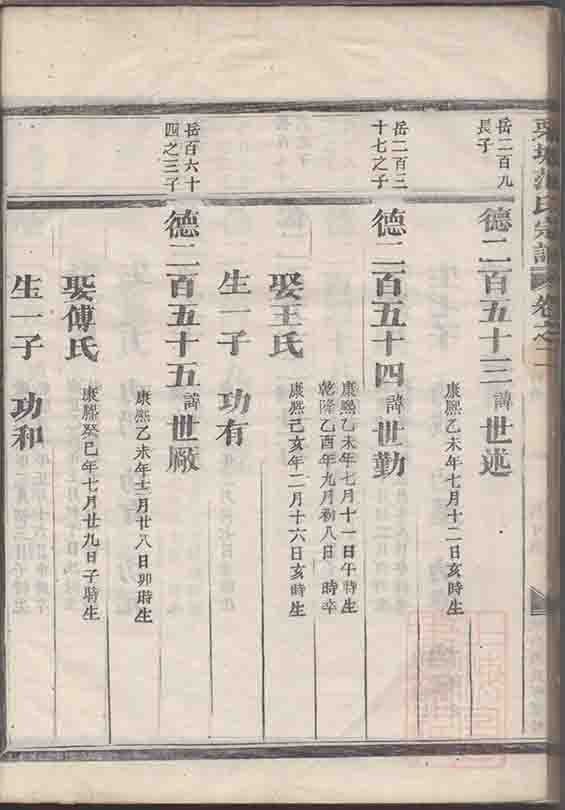 氏宗譜 卷之二
岳二百九
長子
德二百五十三諱世述
康熙乙未年七月十二日亥時生
岳二百三
十七之子
德二百五十四諱世勤
康熙乙未年七月十一日午時生
乾隆乙酉年九月初八日 時卒
娶王氏
康熙己亥年二月十六日亥時生
生一子 功有
岳百六十
四之三子
德二百五十五諱世厰
康熙乙未年十二月廿八日卯時生
娶傅氏
康熙癸巳年七月廿九日子時生
生一子 功和